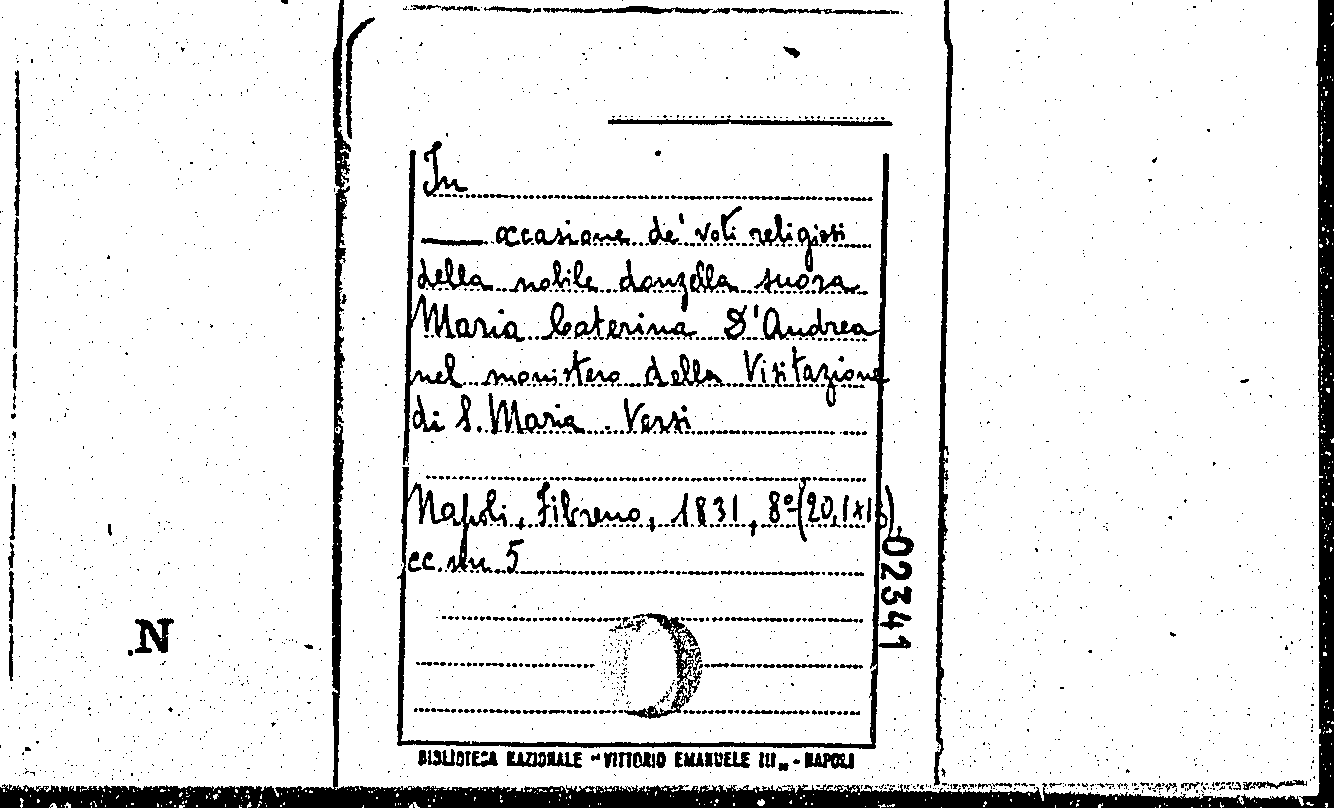 In
occasione de' voti religiosi
della nobile donzella suora
Maria Caterina D'Andrea
nel monistero della Visitazione
di S. Maria. Versi
Napoli, Fibreno, 1831, 8º (20,1x13),
cc. nn 5
02341
.N
BIBLIOTECA NAZIONALE "VITTORIO EMANUELE III" - NAPOLI